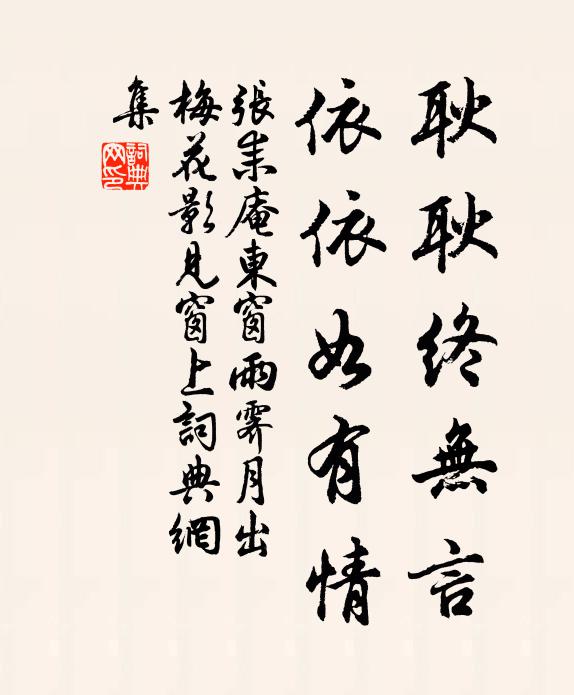 耿耿終無言
依依如有情
張耒庵東窗雨霽月出
梅花影見窗上詞典網
集
詞典網印